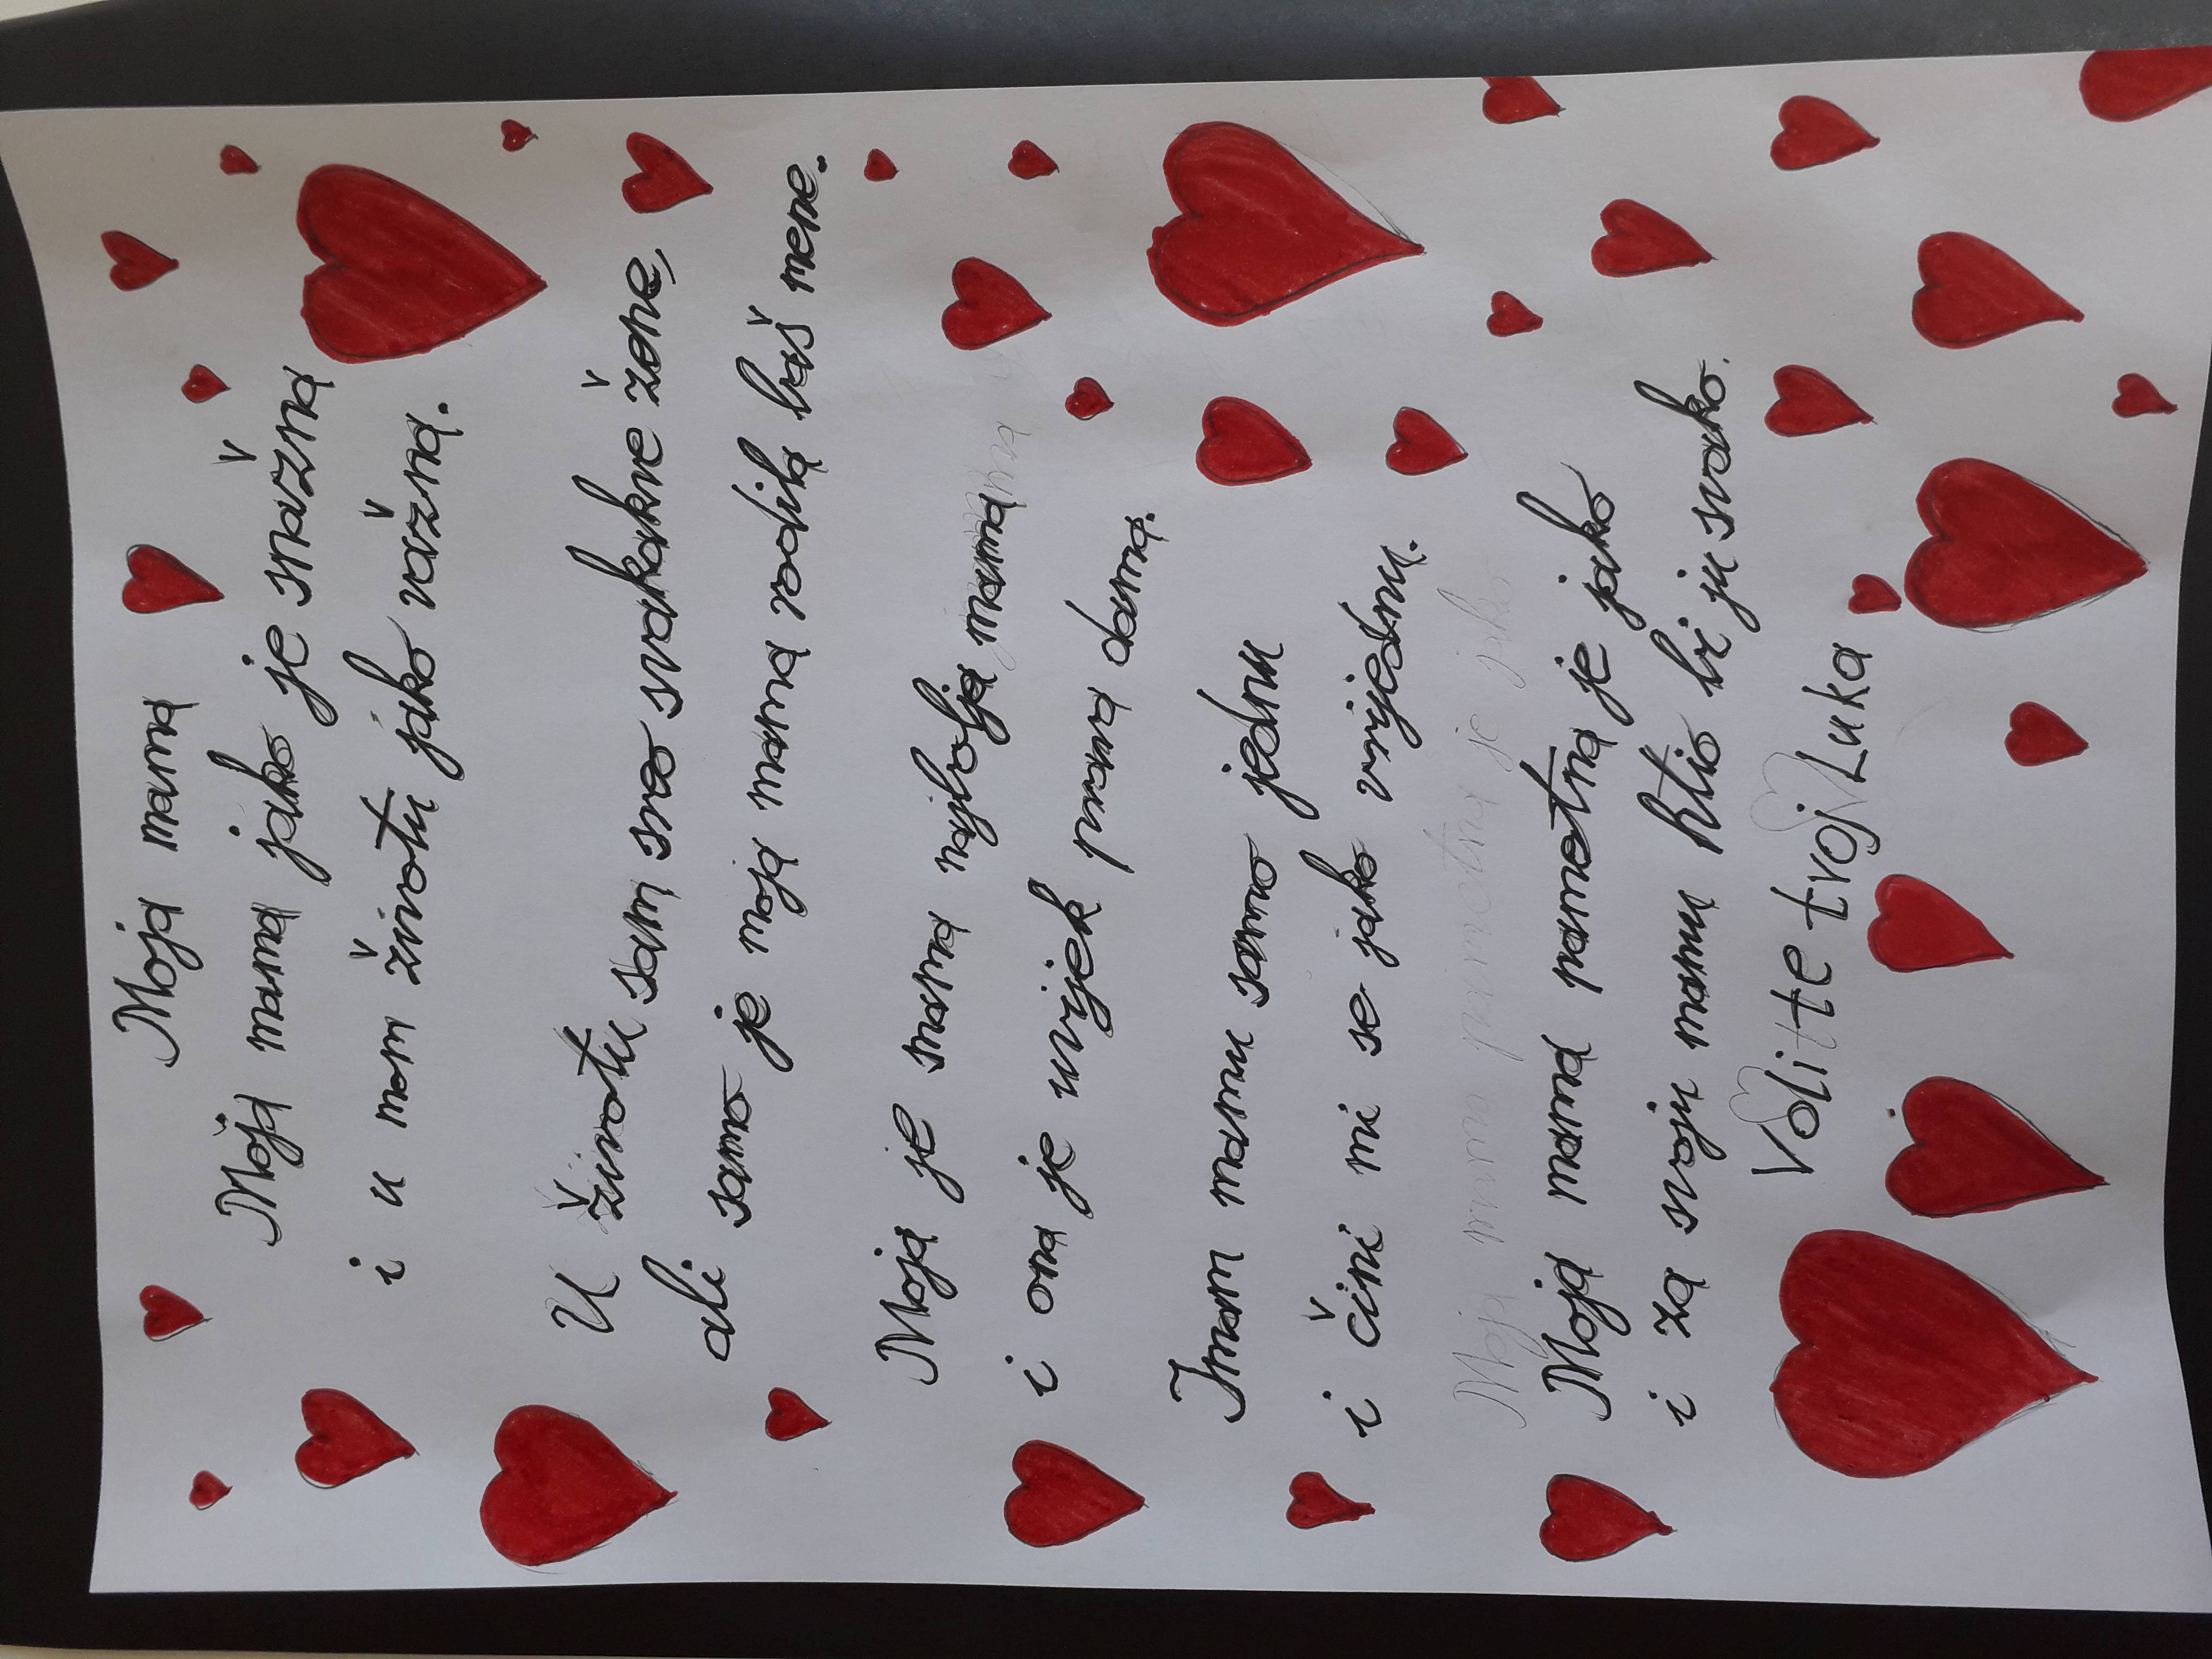 Moja mama
Moja mama jako je snažna
i u mom životu jako važna.
U životu sam sreo svakakve žene,
ali samo je moja mama rodila baš mene.
Moja je mama najbolja mama
i ona je uvijek prava dama.
Imam mamu samo jednu
i čini mi se jako vrijednu.
Moja mama pametna je jako
Moja mama pametna je jako
i za svoju mamu htio bi ju svako.
Voli te tvoj Luka